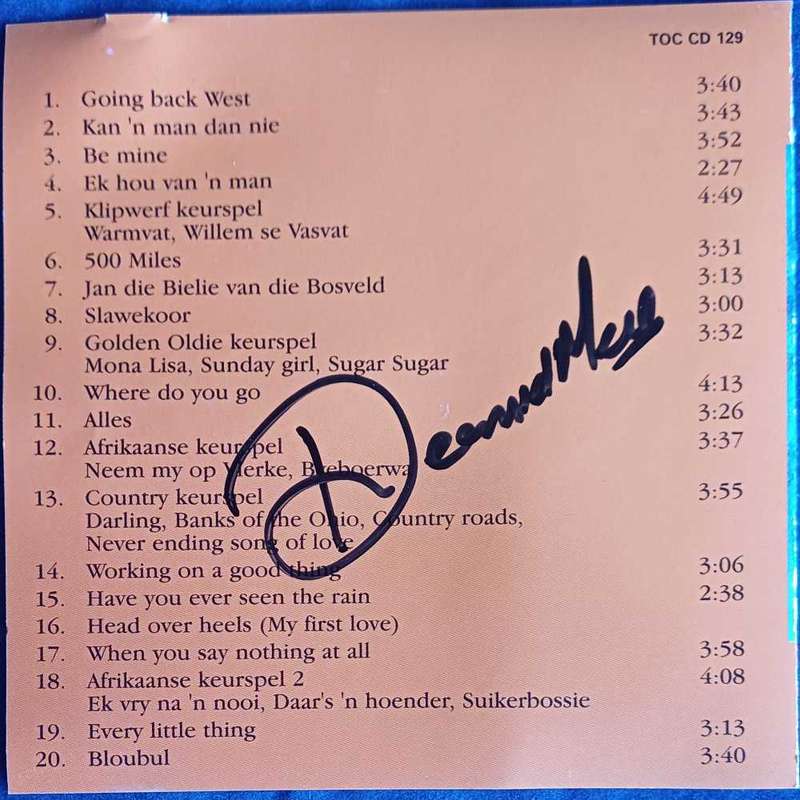 TOC CD 129
1. Going back West 3:40
2. Kan 'n man dan nie 3:43
3. Be mine 3:52
4. Ek hou van 'n man 2:27
5. Klipwerf keurspel 4:49
Warmvat, Willem se Vasvat
6. 500 Miles 3:31
7. Jan die Bielie van die Bosveld 3:13
8. Slawekoor 3:00
9. Golden Oldie keurspel 3:32
Mona Lisa, Sunday girl, Sugar Sugar
10. Where do you go 4:13
11. Alles 3:26
12. Afrikaanse keurspel 3:37
Neem my op Vlerke,
13. Country keurspel 3:55
Darling, Banks of the Ohio, Country roads,
Never ending song of love
14. Working on a good thing 3:06
15. Have you ever seen the rain 2:38
16. Head over heels (My first love)
17. When you say nothing at all 3:58
18. Afrikaanse keurspel 2 4:08
Ek vry na 'n nooi, Daar's 'n hoender, Suikerbossie
19. Every little thing 3:13
20. Bloubul 3:40